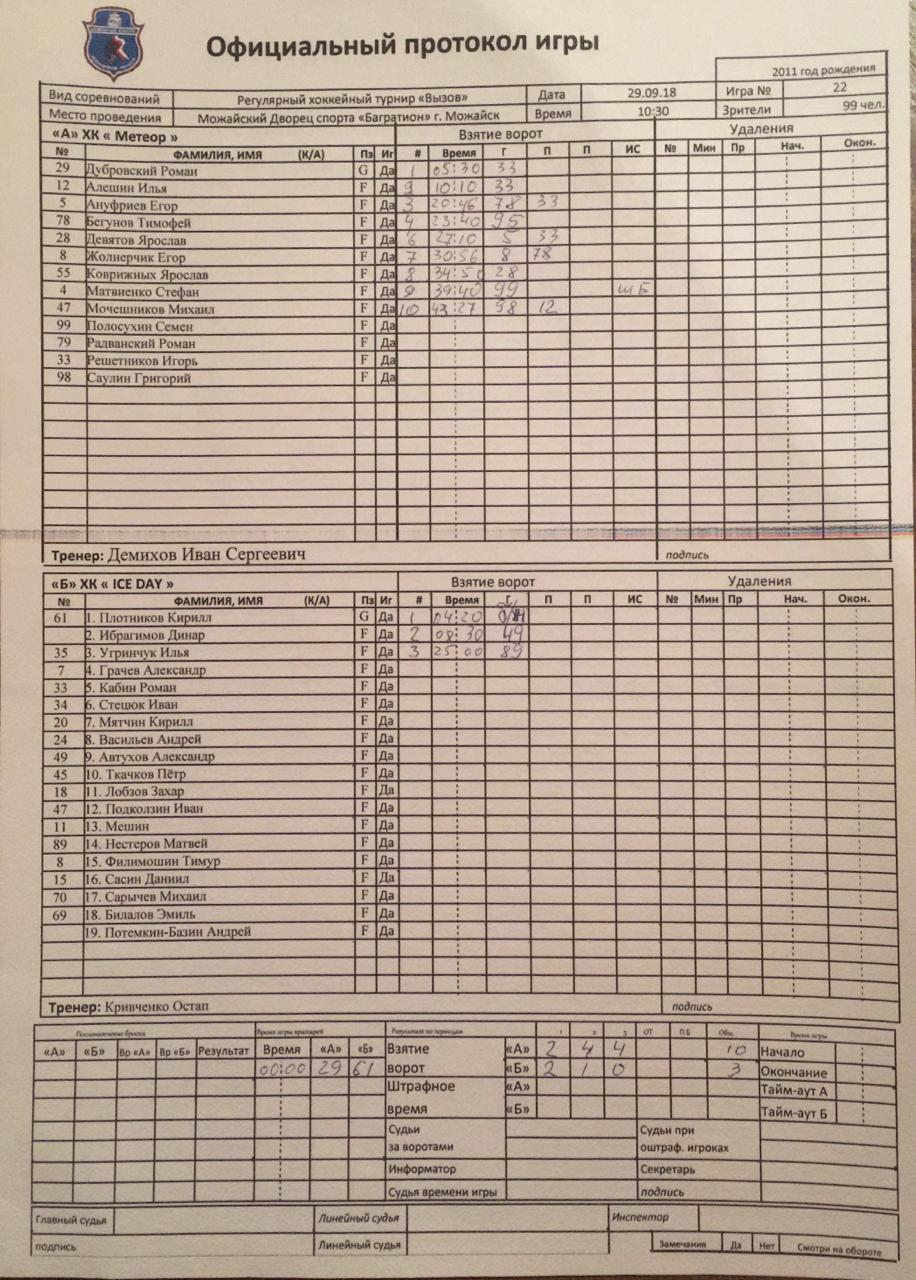 Официальный протокол игры
2011 год рождения
Вид соревнований Регулярный хоккейный турнир «Вызов» Дата 29.09.18 Игра № 22
Место проведения Можайский Дворец спорта «Багратион» г. Можайск Время 10:30 Зрители 99 чел.
«А» ХК « Метеор » Взятие ворот Удаления
№ ФАМИЛИЯ, ИМЯ (К/А) Пз Иг # Время Г П П ИС № Мин Пр Нач. Окон.
29 Дубровский Роман G Да 1 05:30 33
12 Алешин Илья F Да 2 10:10 33
5 Ануфриев Егор F Да 3 20:46 78 33
78 Бегунов Тимофей F Да 4 23:40 95
28 Девятов Ярослав F Да 6 27:10 5 33
8 Жолнерчик Егор F Да 7 30:56 8 78
55 Коврижных Ярослав F Да 8 34:51 28
4 Матвиенко Стефан F Да 9 39:40 99 ШБ
47 Мочешников Михаил F Да 10 43:27 98 12
99 Полосухин Семен F Да
79 Радванский Роман F Да
33 Решетников Игорь F Да
98 Саулин Григорий F Да
Тренер: Демихов Иван Сергеевич подпись
«Б» ХК « ICE DAY » Взятие ворот Удаления
№ ФАМИЛИЯ, ИМЯ (К/А) Пз Иг # Время Г П П ИС № Мин Пр Нач. Окон.
61 1. Плотников Кирилл G Да 1 04:20
2. Ибрагимов Динар F Да 2 08:30 49
35 3. Угринчук Илья F Да 3 25:00 89
7 4. Грачев Александр F Да
33 5. Кабин Роман F Да
34 6. Стецюк Иван F Да
20 7. Мятчин Кирилл F Да
24 8. Васильев Андрей F Да
49 9. Автухов Александр F Да
45 10. Ткачков Пётр F Да
18 11. Лобзов Захар F Да
47 12. Подколзин Иван F Да
11 13. Мешин F Да
89 14. Нестеров Матвей F Да
8 15. Филимошин Тимур F Да
15 16. Сасин Даниил F Да
70 17. Сарычев Михаил F Да
69 18. Билалов Эмиль F Да
19. Потемкин-Базин Андрей F Да
Тренер: Кривченко Остап подпись
Послематчевые броски Время игры вратарей Результат по периодам 1 2 3 ОТ ПБ Общ. Время игры
«А» «Б» Вр «А» Вр «Б» Результат Время «А» «Б» Взятие «А» 2 4 4 10 Начало
00:00 29 61 ворот «Б» 2 1 0 3 Окончание
Штрафное «А» Тайм-аут А
время «Б» Тайм-аут Б
Судьи Судьи при
за воротами оштраф. игроках
Информатор Секретарь
Судья времени игры подпись
Главный судья Линейный судья Инспектор
подпись Линейный судья Замечания Да Нет Смотри на обороте